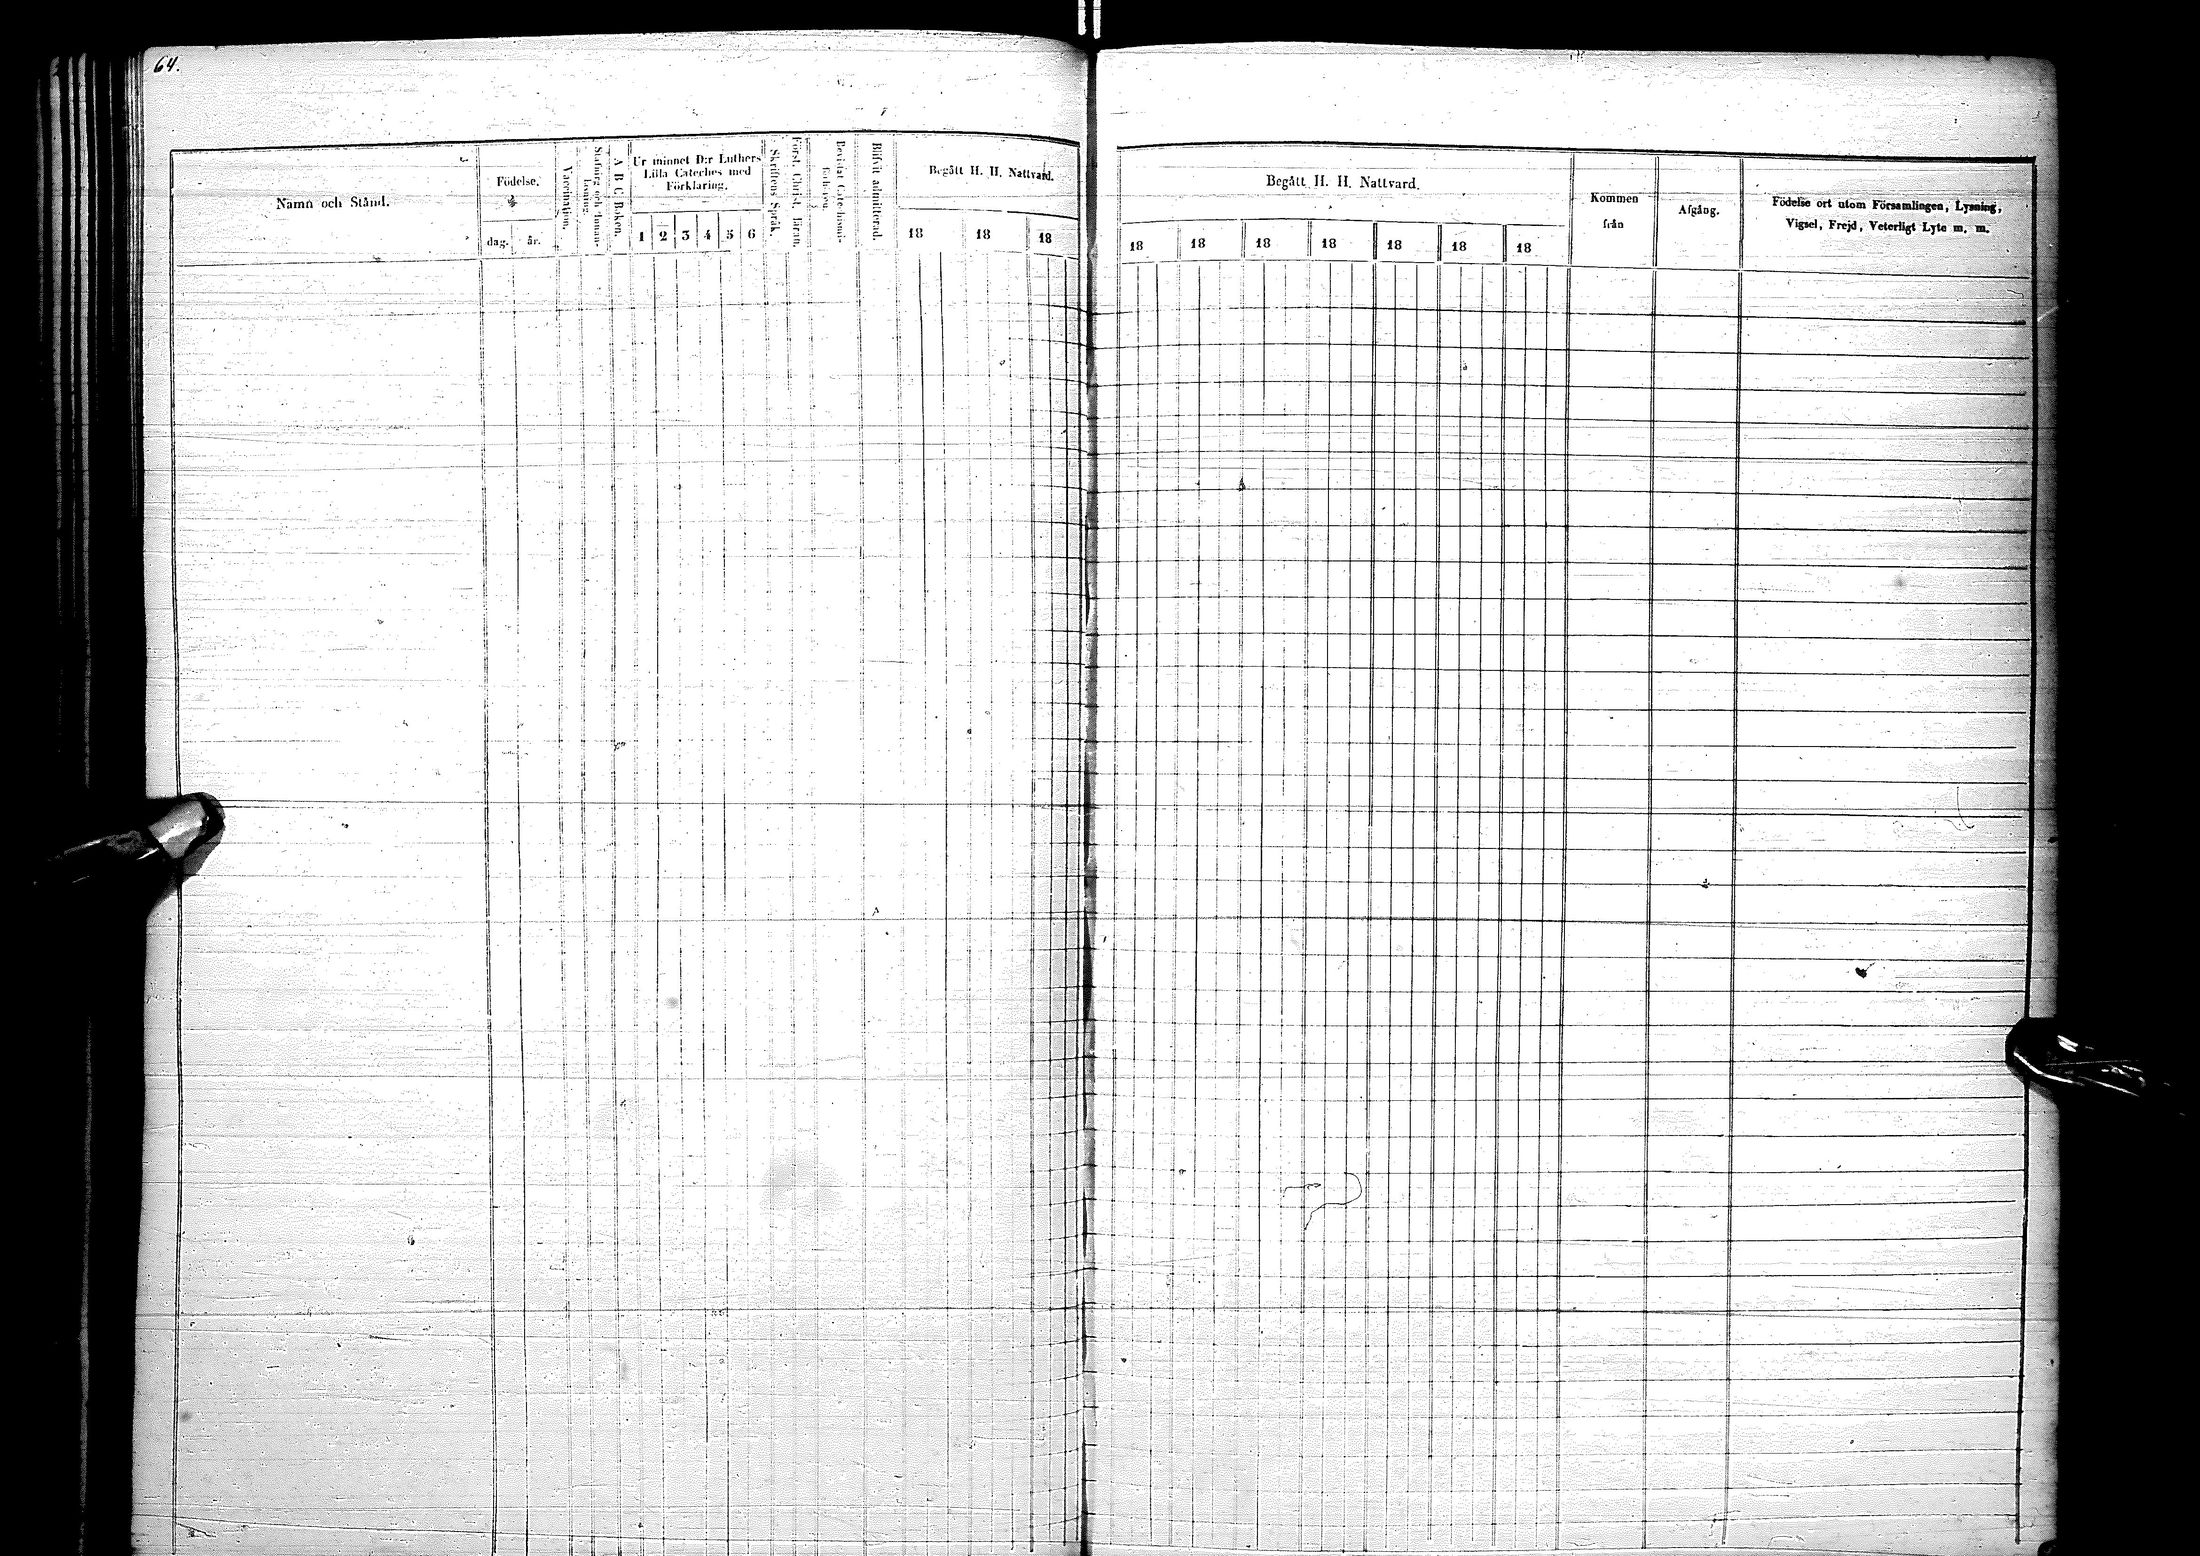 64.
Namn och Stånd.
Födelse.
dag.
år.
Vaccination.
Stafning och Innan-
läsning.
A B C Boken.
Ur minnet D:r Luthers
Lilla Cateches med
Förklaring.
1 2 3 4 5 6
Skriftens Språk.
Först. Christ. läran.
Bevistat Catechismi-
Blifvit admitterad.
Begått H. H. Nattvard.
18 18 18
Begått H. H. Nattvard.
18 18 18 18 18 18 18
Kommen
från
Afgång.
Födelse ort utom Församlingen, Lysning,
Vigsel, Frejd, Veterligt Lyte m. m.